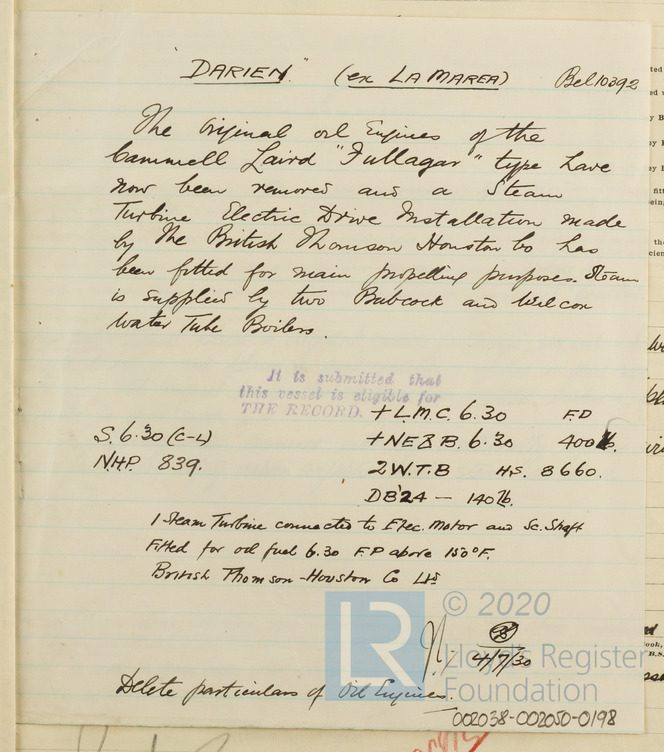 "DARIEN" (ex LA MAREA) Bel 10392
The original oil Engines of the
Cammell Laird "Fullagar" type have
now been removed and a Steam
Turbine Electric Drive Installation made
by the British Thomson Houston Co has
been fitted for main propelling purposes. Steam
is supplied by two Babcock and Wilcox
Water Tube Boilers.
It is submitted that
this vessel is eligible for
THE RECORD. + L.M.C. 6.30 F.D
S. 6.30 (C-L) + NE&B. 6.30 400 lb.
N.H.P. 839. 2 W.T.B H.S. 8660.
DB'24 — 140 lb.
1 Steam Turbine connected to Elec. Motor and Sc. Shaft
Fitted for oil fuel 6.30 F.P above 150°F.
British Thomson-Houston Co Ltd
LR © 2020
4/7/30
Lloyd's Register
Foundation
Delete particulars of Oil Engines.
002038-002050-0198